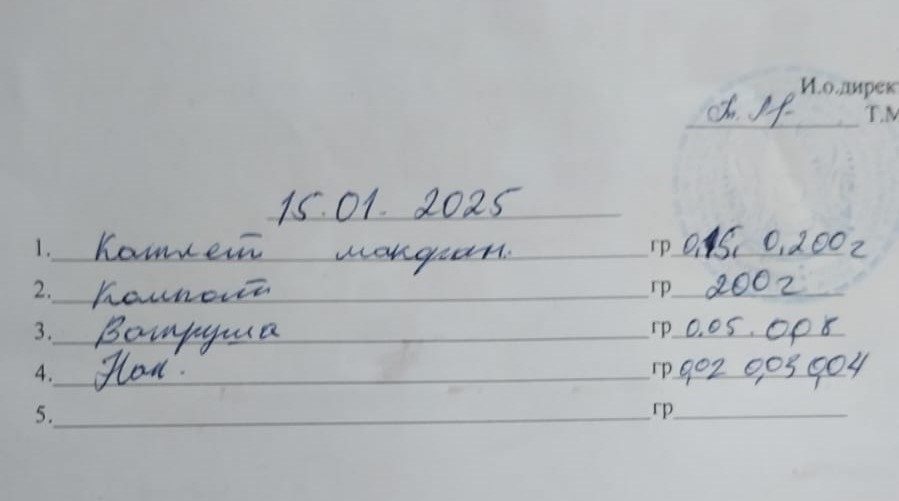 И.о.дирек
Т.М
15.01. 2025
1. Котлет макарон. гр 0,15, 0,200 г
2. Компот гр 200 г
3. Ватруша гр 0.05. 0,08
4. Нан. гр 0,02 0,03 0,04
5. гр